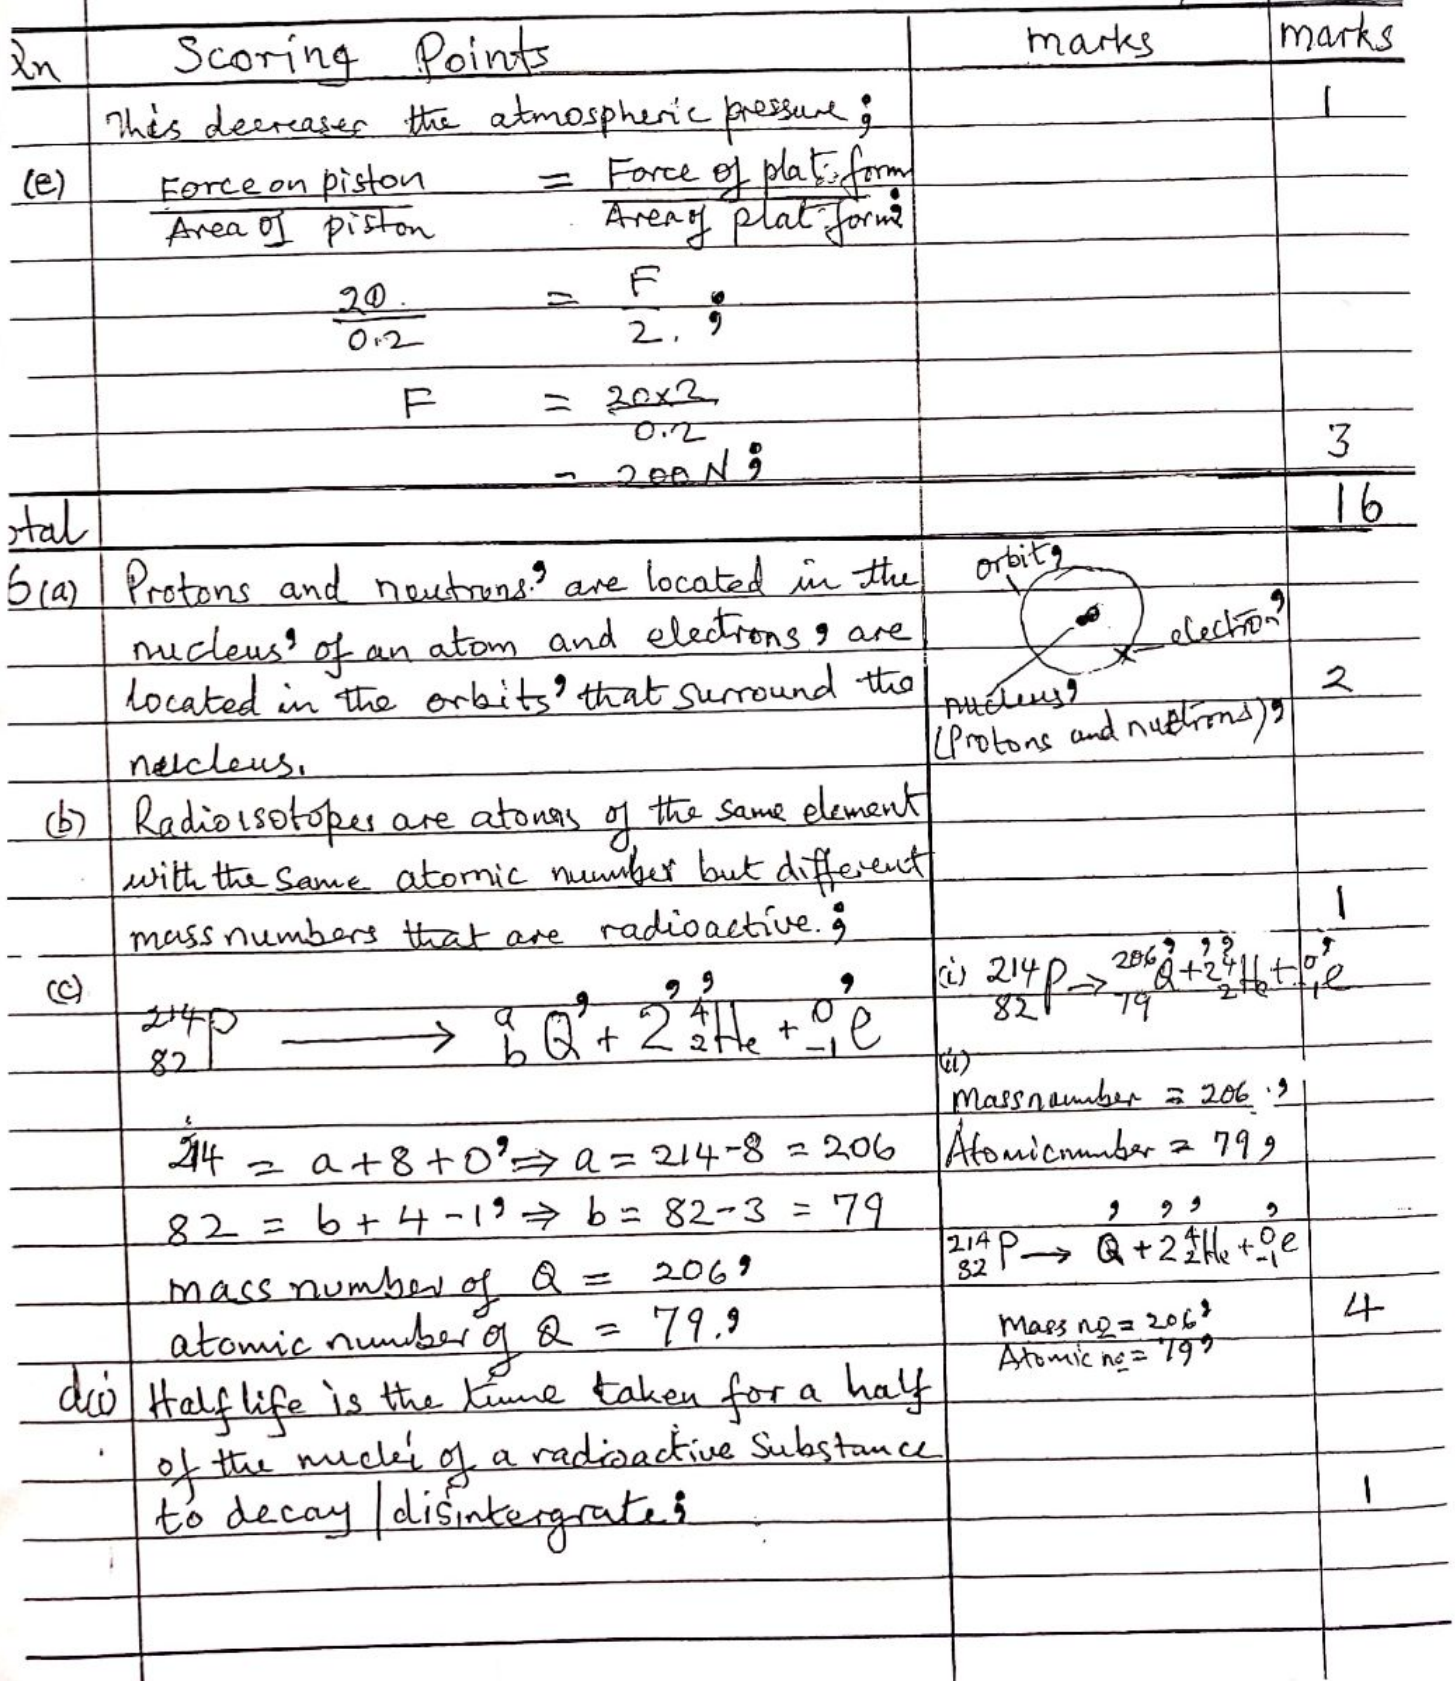 Qn Scoring Points marks marks
This decreases the atmospheric pressure; 1
(e) Force on piston = Force of platform
Area of piston Area of platform;
20 = F
0.2 2. ;
F = 20x2
0.2
= 200 N; 3
otal 16
6(a) Protons and neutrons, are located in the
nucleus, of an atom and electrons, are
located in the orbits, that surround the
nucleus.
orbit,
electron,
nucleus,
(Protons and nuetrons), 2
(b) Radioisotopes are atoms of the same element
with the same atomic number but different
mass numbers that are radioactive.; 1
(c) 214 82 P → a b Q, + 2, 4 2 He, + 0 -1 e,
214 = a + 8 + 0, ⇒ a = 214 - 8 = 206
82 = b + 4 - 1, ⇒ b = 82 - 3 = 79
mass number of Q = 206,
atomic number of Q = 79.,
(i) 214 82 P → 206 79 Q, + 2, 4 2 He, + 0 -1 e,
(ii)
Mass number = 206.,
Atomic number = 79,
214 82 P → Q, + 2, 4 2 He, + 0 -1 e,
Mass no = 206,
Atomic no = 79, 4
d(i) Half life is the time taken for a half
of the nuclei of a radioactive substance
to decay / disintergrate; 1